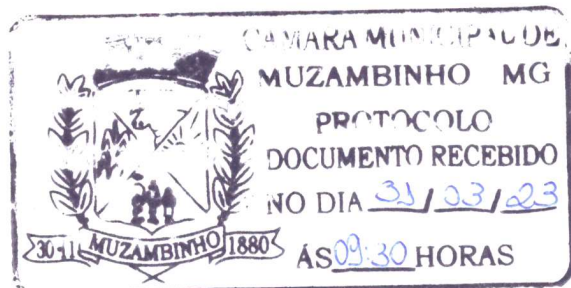 CÂMARA MUNICIPAL DE
MUZAMBINHO MG
PROTOCOLO
DOCUMENTO RECEBIDO
NO DIA 31/03/23
ÁS 09:30 HORAS
30-11 MUZAMBINHO 1880